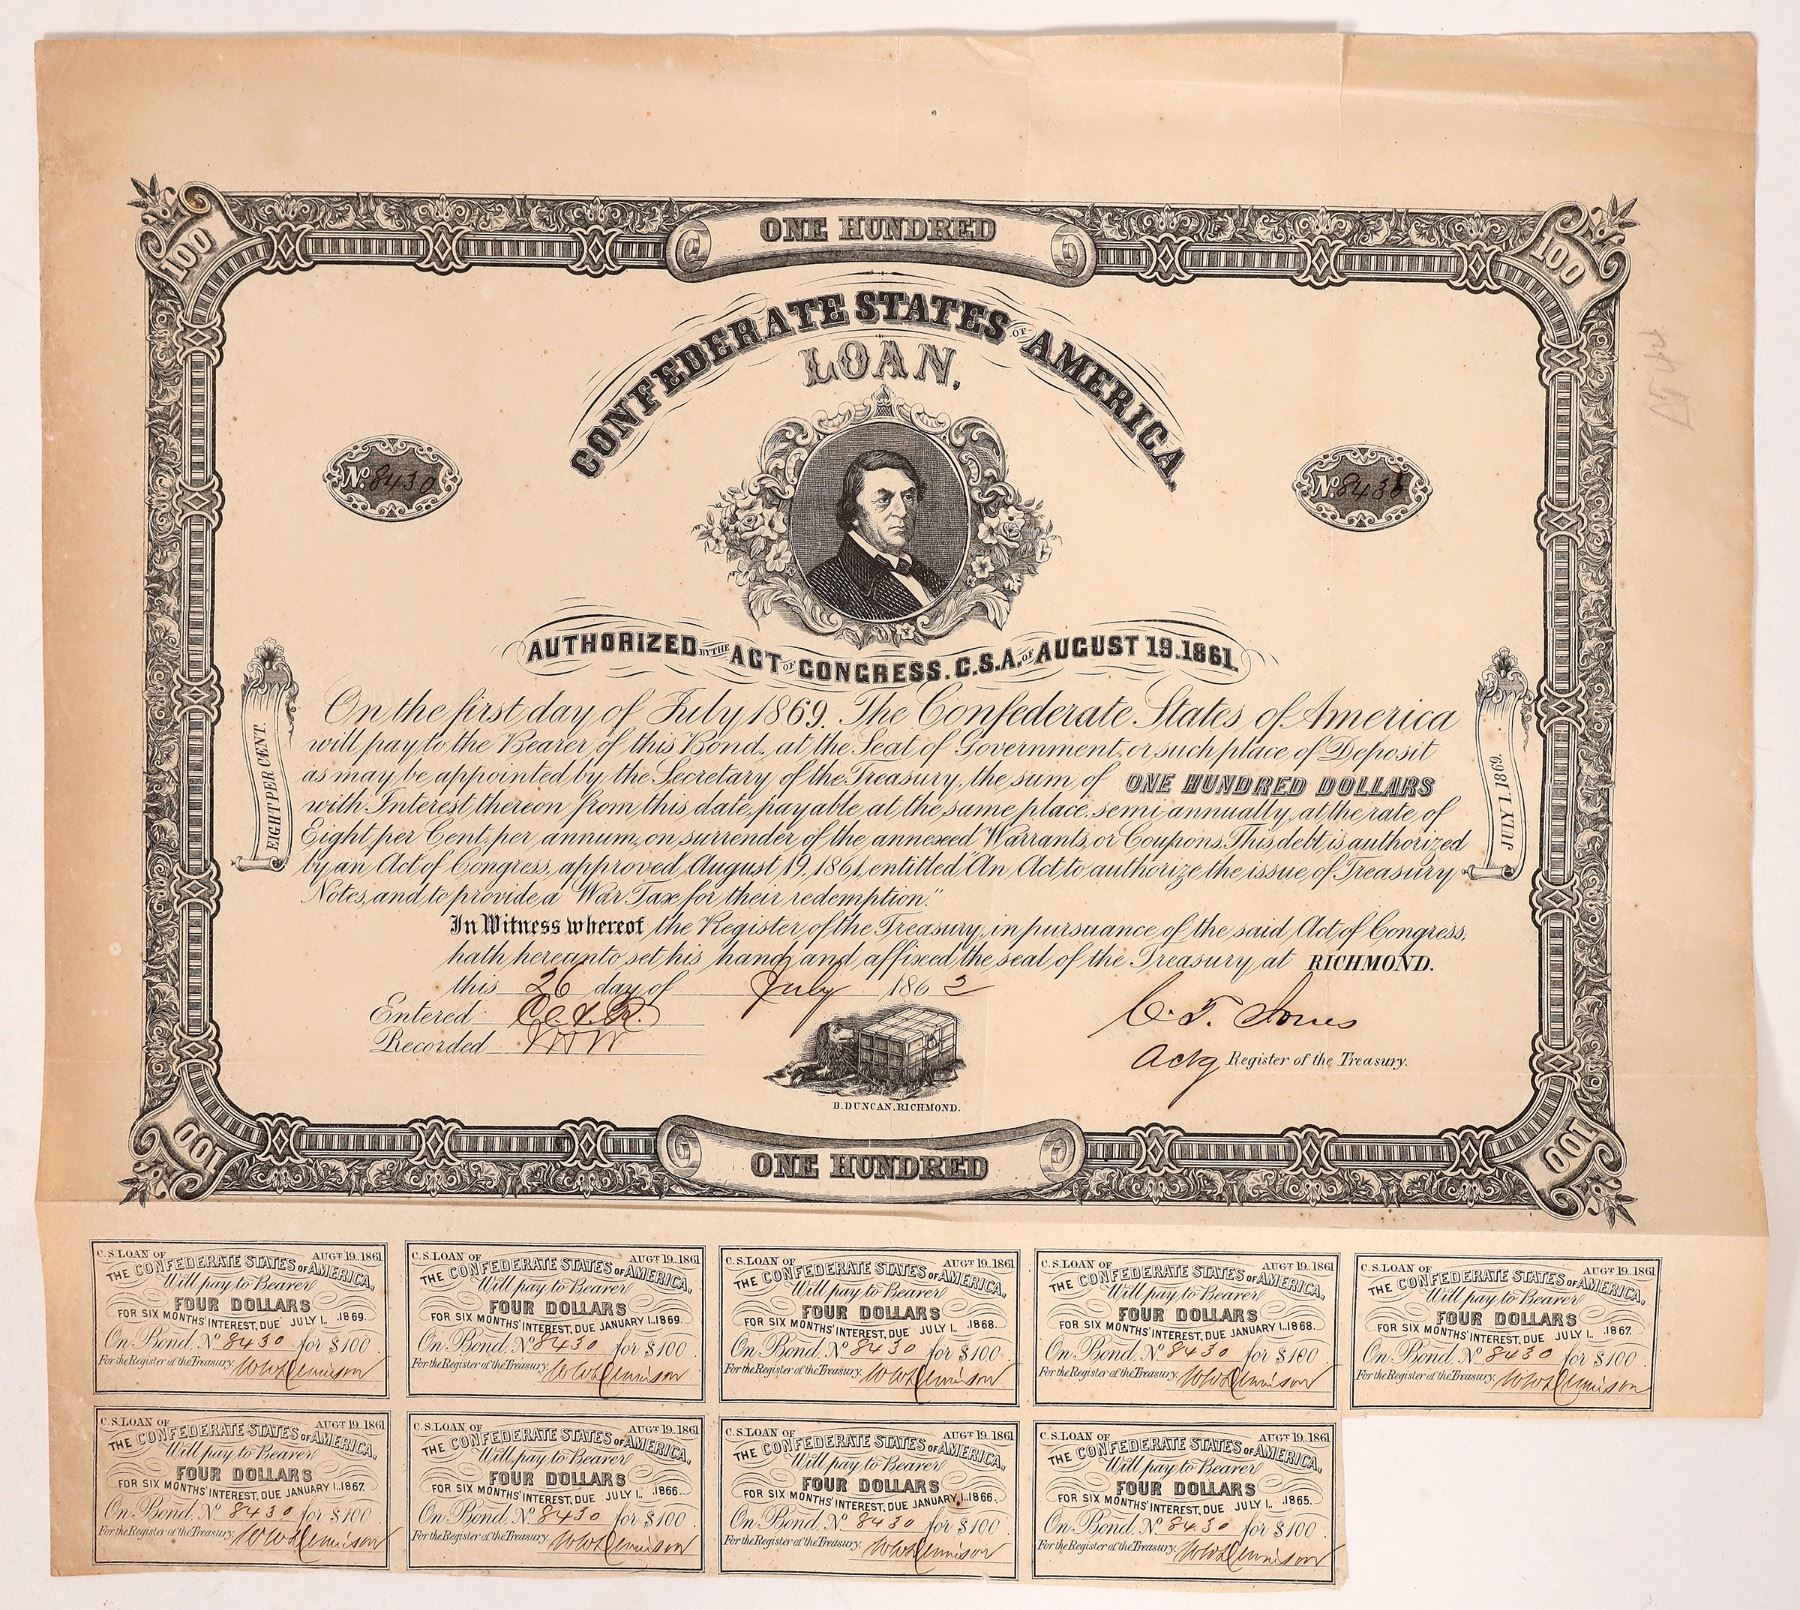 100
ONE HUNDRED
100
CONFEDERATE STATES OF AMERICA.
LOAN,
No. 8430
No. 8430
AUTHORIZED BY THE ACT OF CONGRESS. C.S.A. OF AUGUST 19. 1861.
EIGHT PER CENT.
JULY 1. 1869.
On the first day of July 1869. The Confederate States of America
will pay to the Bearer of this Bond, at the Seat of Government, or such place of Deposit
as may be appointed by the Secretary of the Treasury, the sum of ONE HUNDRED DOLLARS
with Interest thereon from this date, payable at the same place, semi annually, at the rate of
Eight per Cent, per annum, on surrender of the annexed Warrants, or Coupons. This debt is authorized
by an Act of Congress, approved August 19, 1861, entitled "An Act to authorize the issue, of Treasury
Notes, and to provide a War Tax for their redemption."
In Witness whereof the Register of the Treasury, in pursuance of the said Act of Congress,
hath hereunto set his hand, and affixed the seal of the Treasury, at RICHMOND.
this 26 day of July 1862
Entered
Recorded
C. T. Jones
Actg Register of the Treasury.
B. DUNCAN. RICHMOND.
100
ONE HUNDRED
100
C. S. LOAN OF AUGT 19. 1861
THE CONFEDERATE STATES OF AMERICA,
Will pay to Bearer
FOUR DOLLARS
FOR SIX MONTHS' INTEREST, DUE JULY 1.. 1869.
On Bond. No 8430 for $100.
For the Register of the Treasury, W W Dennison
C. S. LOAN OF AUGT 19. 1861
THE CONFEDERATE STATES OF AMERICA,
Will pay to Bearer
FOUR DOLLARS
FOR SIX MONTHS' INTEREST, DUE JANUARY 1..1869.
On Bond. No 8430 for $100.
For the Register of the Treasury, W W Dennison
C. S. LOAN OF AUGT 19. 1861
THE CONFEDERATE STATES OF AMERICA,
Will pay to Bearer
FOUR DOLLARS
FOR SIX MONTHS' INTEREST, DUE JULY 1.. 1868.
On Bond. No 8430 for $100.
For the Register of the Treasury, W W Dennison
C. S. LOAN OF AUGT 19. 1861
THE CONFEDERATE STATES OF AMERICA,
Will pay to Bearer
FOUR DOLLARS
FOR SIX MONTHS' INTEREST, DUE JANUARY 1..1868.
On Bond. No 8430 for $100.
For the Register of the Treasury, W W Dennison
C. S. LOAN OF AUGT 19. 1861
THE CONFEDERATE STATES OF AMERICA,
Will pay to Bearer
FOUR DOLLARS
FOR SIX MONTHS' INTEREST, DUE JULY 1.. 1867.
On Bond. No 8430 for $100.
For the Register of the Treasury, W W Dennison
C. S. LOAN OF AUGT 19. 1861
THE CONFEDERATE STATES OF AMERICA,
Will pay to Bearer
FOUR DOLLARS
FOR SIX MONTHS' INTEREST, DUE JANUARY 1..1867.
On Bond. No 8430 for $100.
For the Register of the Treasury, W W Dennison
C. S. LOAN OF AUGT 19. 1861
THE CONFEDERATE STATES OF AMERICA,
Will pay to Bearer
FOUR DOLLARS
FOR SIX MONTHS' INTEREST, DUE JULY 1.. 1866.
On Bond. No 8430 for $100.
For the Register of the Treasury, W W Dennison
C. S. LOAN OF AUGT 19. 1861
THE CONFEDERATE STATES OF AMERICA,
Will pay to Bearer
FOUR DOLLARS
FOR SIX MONTHS' INTEREST, DUE JANUARY 1..1866.
On Bond. No 8430 for $100.
For the Register of the Treasury, W W Dennison
C. S. LOAN OF AUGT 19. 1861
THE CONFEDERATE STATES OF AMERICA,
Will pay to Bearer
FOUR DOLLARS
FOR SIX MONTHS' INTEREST, DUE JULY 1.. 1865.
On Bond. No 8430 for $100.
For the Register of the Treasury, W W Dennison